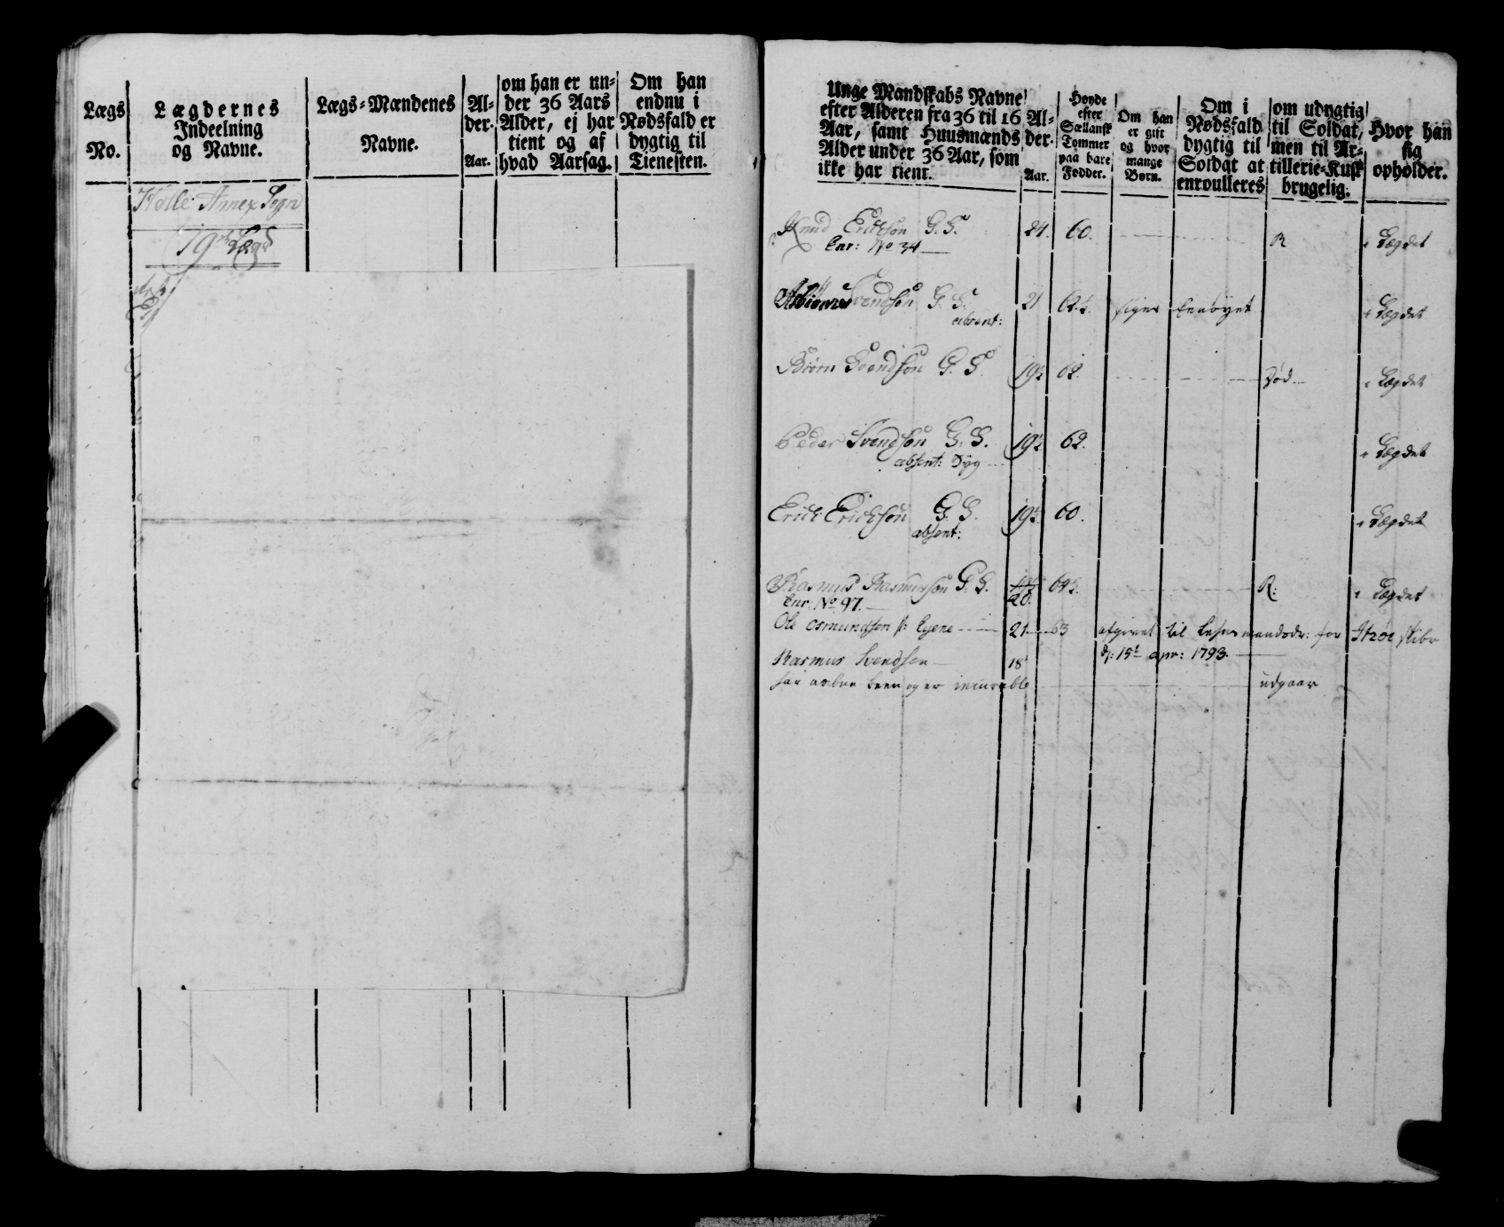 Lægs
No.
Lægdernes
Indeelning
og Navne.
Lægs-Mændenes
Navne.
Al-
der.
Aar.
om han er un-
der 36 Aars
Alder, ej har
tient og af
hvad Aarsag.
Om han
endnu i
Nødsfald er
dygtig til
Tienesten.
Holle Annex Sogn
79de Lægd
Unge Mandskabs Navne
efter Alderen fra 36 til 16
Aar, samt Huusmænds
Alder under 36 Aar, som
ikke har tient.
Al-
der.
Aar.
Høyde
efter
Siællansk
Tommer
paa bare
Fødder.
Om han
er gift
og hvor
mange
Børn.
Om i
Nødsfald
dygtig til
Soldat at
enroulleres
om udygtig
til Soldat,
men til Ar-
tillerie-Kusk
brugelig.
Hvor han
sig
opholder.
Knud Erichsøn G. S. 24. 60. R i Lægdet
Enr: No 34
Svendsøn G. S. 21 62½ i Lægdet
absent:
Biörn Svendsøn G. S. 19½ 62. död i Lægdet
Peder Svendsøn G. S. 19½ 62. i Lægdet
absent: Syg
Erich Erichsøn G. S. 19½ 60. i Lægdet
absent:
Rasmus Rasmusøn G. S. 20. 64½ R. i Lægdet
Enr. No 97.
Ole Osmundsøn 21 63 afgivet til for
d: 15de apr: 1793.
Rasmus Svendsøn 18
har og er incurable udgaar